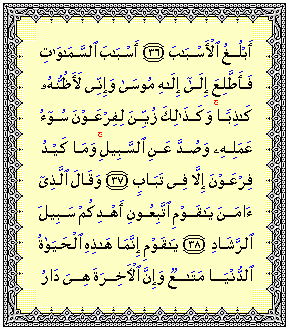 أَبۡلُغُ ٱلۡأَسۡبَٰبَ ٣٦ أَسۡبَٰبَ ٱلسَّمَٰوَٰتِ
فَأَطَّلِعَ إِلَىٰٓ إِلَٰهِ مُوسَىٰ وَإِنِّي لَأَظُنُّهُۥ
كَٰذِبٗاۚ وَكَذَٰلِكَ زُيِّنَ لِفِرۡعَوۡنَ سُوٓءُ
عَمَلِهِۦ وَصُدَّ عَنِ ٱلسَّبِيلِۚ وَمَا كَيۡدُ
فِرۡعَوۡنَ إِلَّا فِي تَبَابٖ ٣٧ وَقَالَ ٱلَّذِيٓ
ءَامَنَ يَٰقَوۡمِ ٱتَّبِعُونِ أَهۡدِكُمۡ سَبِيلَ
ٱلرَّشَادِ ٣٨ يَٰقَوۡمِ إِنَّمَا هَٰذِهِ ٱلۡحَيَوٰةُ
ٱلدُّنۡيَا مَتَٰعٞ وَإِنَّ ٱلۡأٓخِرَةَ هِيَ دَارُ